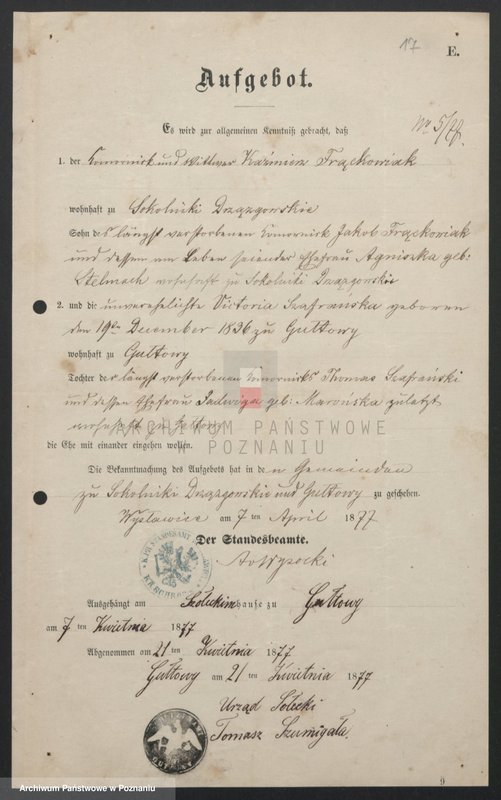 17
E.
Aufgebot.
Es wird zur allgemeinen Kenntniß gebracht, daß
No 5/77.
1. der Komornick und Wittwer Kaźmierz Frąckowiak
wohnhaft zu Sokolniki Drzązgowskie
Sohn des längst verstorbenen Komornick Jakob Frąckowiak
und dessen am Leben seiender Ehefrau Agnieszka geb:
Stelmach wohnhaft zu Sokolniki Drzązgowskie
2. und die unverehelichte Victoria Szafrańska geboren
den 19ten December 1836 zu Gułtowy
wohnhaft zu Gułtowy
Tochter des längst verstorbenen Komornicks Thomas Szafrański
und dessen Ehefrau Jadwiga geb: Marońska zuletzt
wohnhaft zu Gułtowy
ARCHIWUM PAŃSTWOWE
W POZNANIU
die Ehe mit einander eingehen wollen.
Die Bekanntmachung des Aufgebots hat in den Gemeinden
zu Sokolniki Drzązgowskie und Gułtowy zu geschehen.
Wysławice am 7 ten April 1877
Der Standesbeamte.
Ausgehängt am Sołeckim hause zu Gułtowy
am 7 ten Kwietnia 1877
Abgenommen am 21 ten Kwietnia 1877
Gułtowy am 21 ten Kwietnia 1877
Urząd Sołecki
Tomasz Szumigała.
9
Archiwum Państwowe w Poznaniu